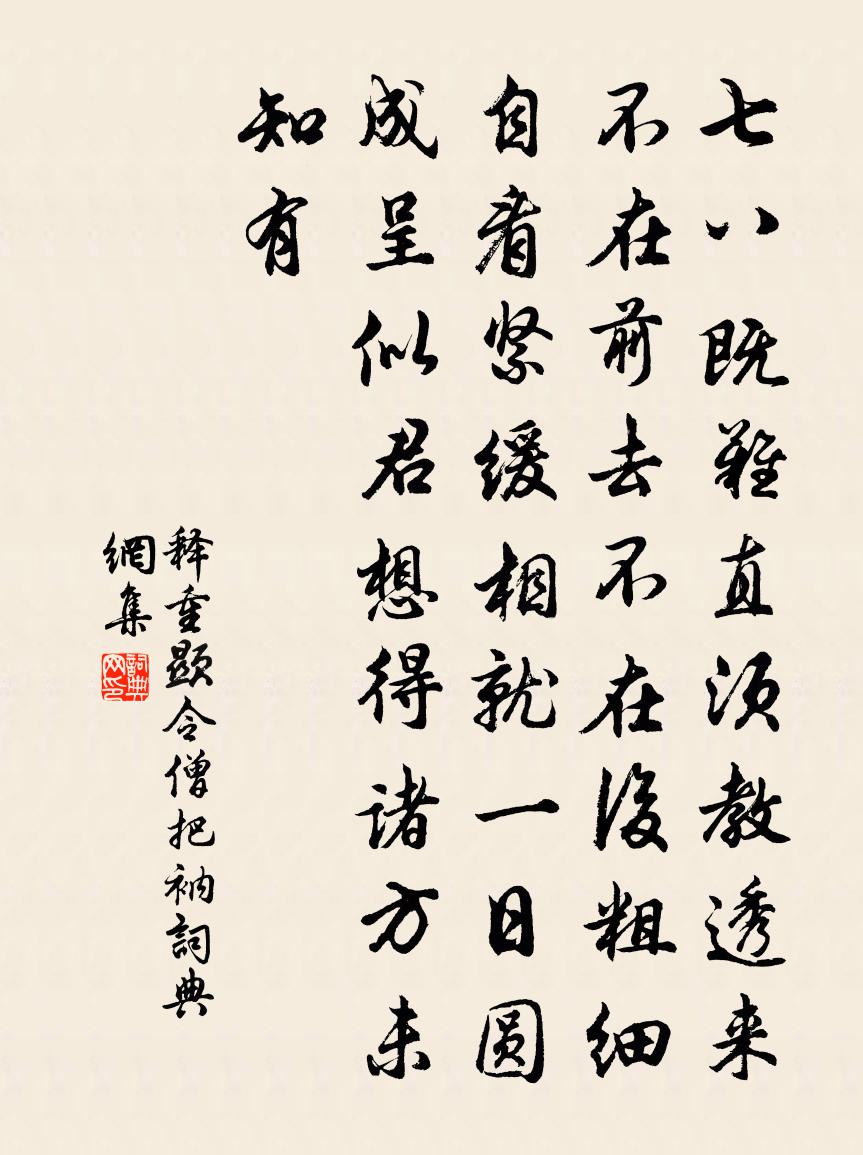 七八既難直须教透来
不在前去不在後粗细
自看紧缓相就一日圆
成呈似君想得诸方未
知有
释重顕令僧把衲詞典
網集
詞典网印